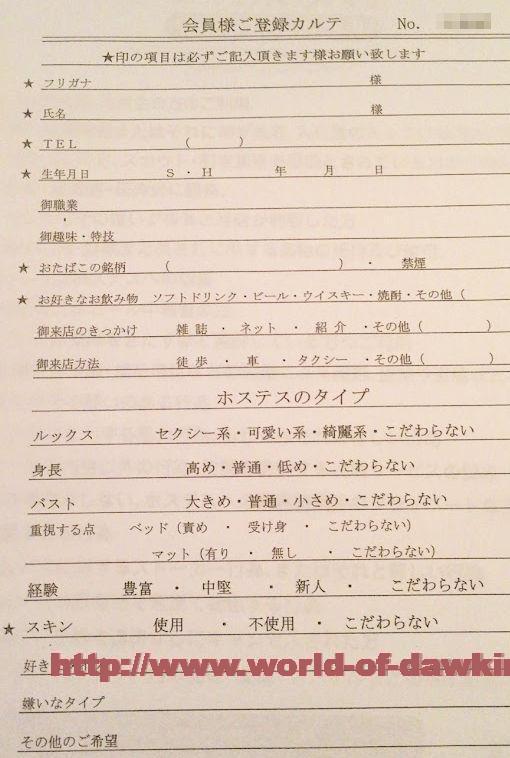 会員様ご登録カルテ No.
★印の項目は必ずご記入頂きます様お願い致します
★ フリガナ 様
★ 氏名 様
★ TEL ( )
★ 生年月日 S ・ H 年 月 日
御職業
御趣味・特技
★ おたばこの銘柄 ( ) ・ 禁煙
★ お好きなお飲み物 ソフトドリンク・ビール・ウイスキー・焼酎・その他 (
御来店のきっかけ 雑誌 ・ ネット ・ 紹介 ・その他 ( )
御来店方法 徒歩 ・ 車 ・ タクシー ・その他 ( )
ホステスのタイプ
ルックス セクシー系・可愛い系・綺麗系・こだわらない
身長 高め・普通・低め・こだわらない
バスト 大きめ・普通・小さめ・こだわらない
重視する点 ベッド (責め ・ 受け身 ・ こだわらない)
マット (有り ・ 無し ・ こだわらない)
経験 豊富 ・ 中堅 ・ 新人 ・ こだわらない
★ スキン 使用 ・ 不使用 ・ こだわらない
好き
http://www.world-of-dawki
嫌いなタイプ
その他のご希望